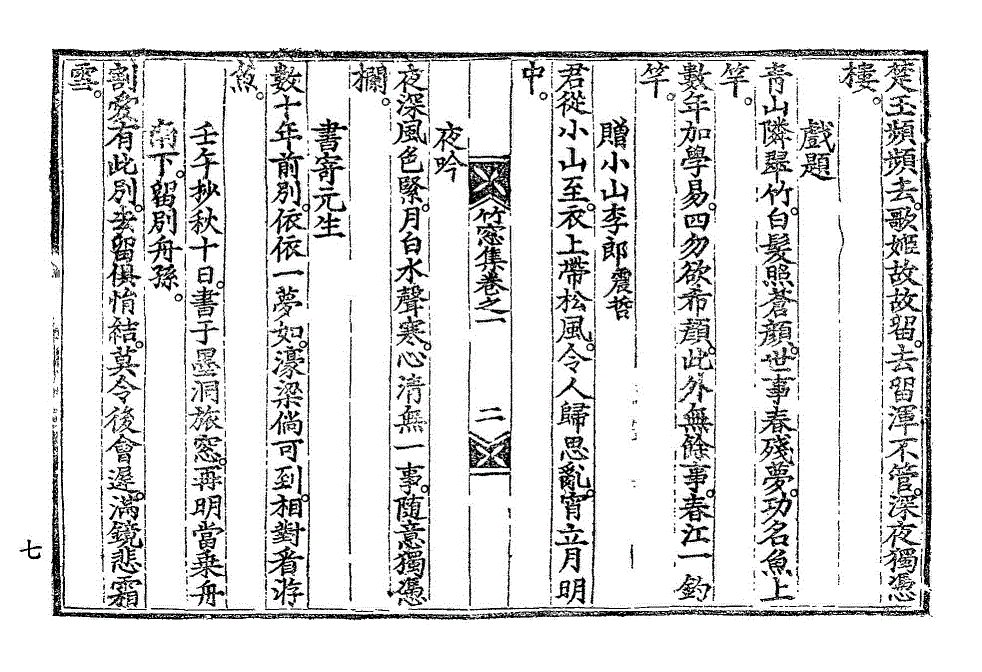 楚玉頻頻去。歌姬故故留。去留渾不管。深夜獨憑
樓。
戲題
靑山隣翠竹。白髮照蒼顔。世事春殘夢。功名魚上
竿。
數年加學易。四勿欲希顔。此外無餘事。春江一釣
竿。
贈小山李郞震哲
君從小山至。衣上帶松風。令人歸思亂。宵立月明
中。
竹窓集卷之一
二
夜吟
夜深風色緊。月白水聲寒。心淸無一事。隨意獨憑
欄。
書寄元生
數十年前別。依依一夢如。濠梁倘可到。相對看游
魚。
壬午抄秋十日。書于墨洞旅窓。再明當乘舟
南下。留別舟孫。
割愛有此別。去留俱悄結。莫令後會遲。滿鏡悲霜
雪。
七